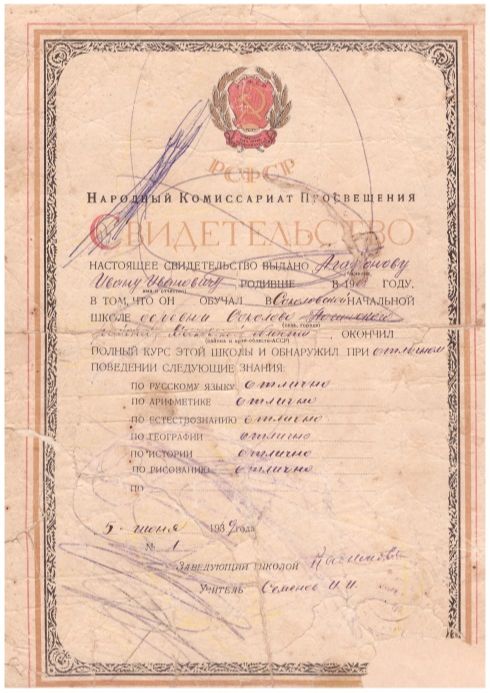 РСФСР
НАРОДНЫЙ КОМИССАРИАТ ПРОСВЕЩЕНИЯ
СВИДЕТЕЛЬСТВО
НАСТОЯЩЕЕ СВИДЕТЕЛЬСТВО ВЫДАНО Агафонову
Ивану Ивановичу, РОДИВШЕ В 19 ГОДУ,
имя и отчество
В ТОМ, ЧТО ОН ОБУЧАЛ В Соколовской НАЧАЛЬНОЙ
ШКОЛЕ Соколова
(село, город)
района области, ОКОНЧИЛ
(района и края-области-АССР)
ПОЛНЫЙ КУРС ЭТОЙ ШКОЛЫ И ОБНАРУЖИЛ ПРИ отличном
ПОВЕДЕНИИ СЛЕДУЮЩИЕ ЗНАНИЯ:
ПО РУССКОМУ ЯЗЫКУ отлично
ПО АРИФМЕТИКЕ отлично
ПО ЕСТЕСТВОЗНАНИЮ отлично
ПО ГЕОГРАФИИ отлично
ПО ИСТОРИИ отлично
ПО РИСОВАНИЮ отлично
ПО
5 июня 1939 года
№ 1
ЗАВЕДУЮЩИЙ ШКОЛОЙ
УЧИТЕЛЬ Семенов И.И.